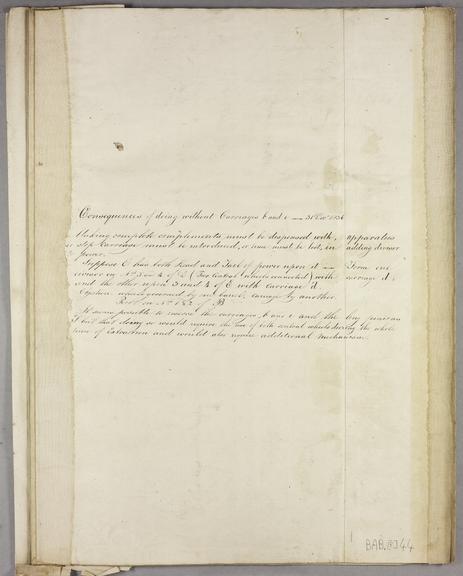 Consequences of doing without Carriages b and c — 31 Dec 1836
Making complete complements must be dispensed with, apparatus
or step Carriage must be introduced, or time must be lost, in adding divisor
Suppose E has both Head and Tail of power upon it — Term one
divisor on Nos 3 or 4 of E (The Central wheels connected) with carriage d
and the other upon 3 and 4 of E with carriage d
one barrel, carriage by another
Rest on 1 & 2 of B
It seems possible to the carriages b and c and the long pinions
but that doing so would require the use of both central wheels during the whole
time of Calculation and would also require additional mechanism.
BAB.[B]44